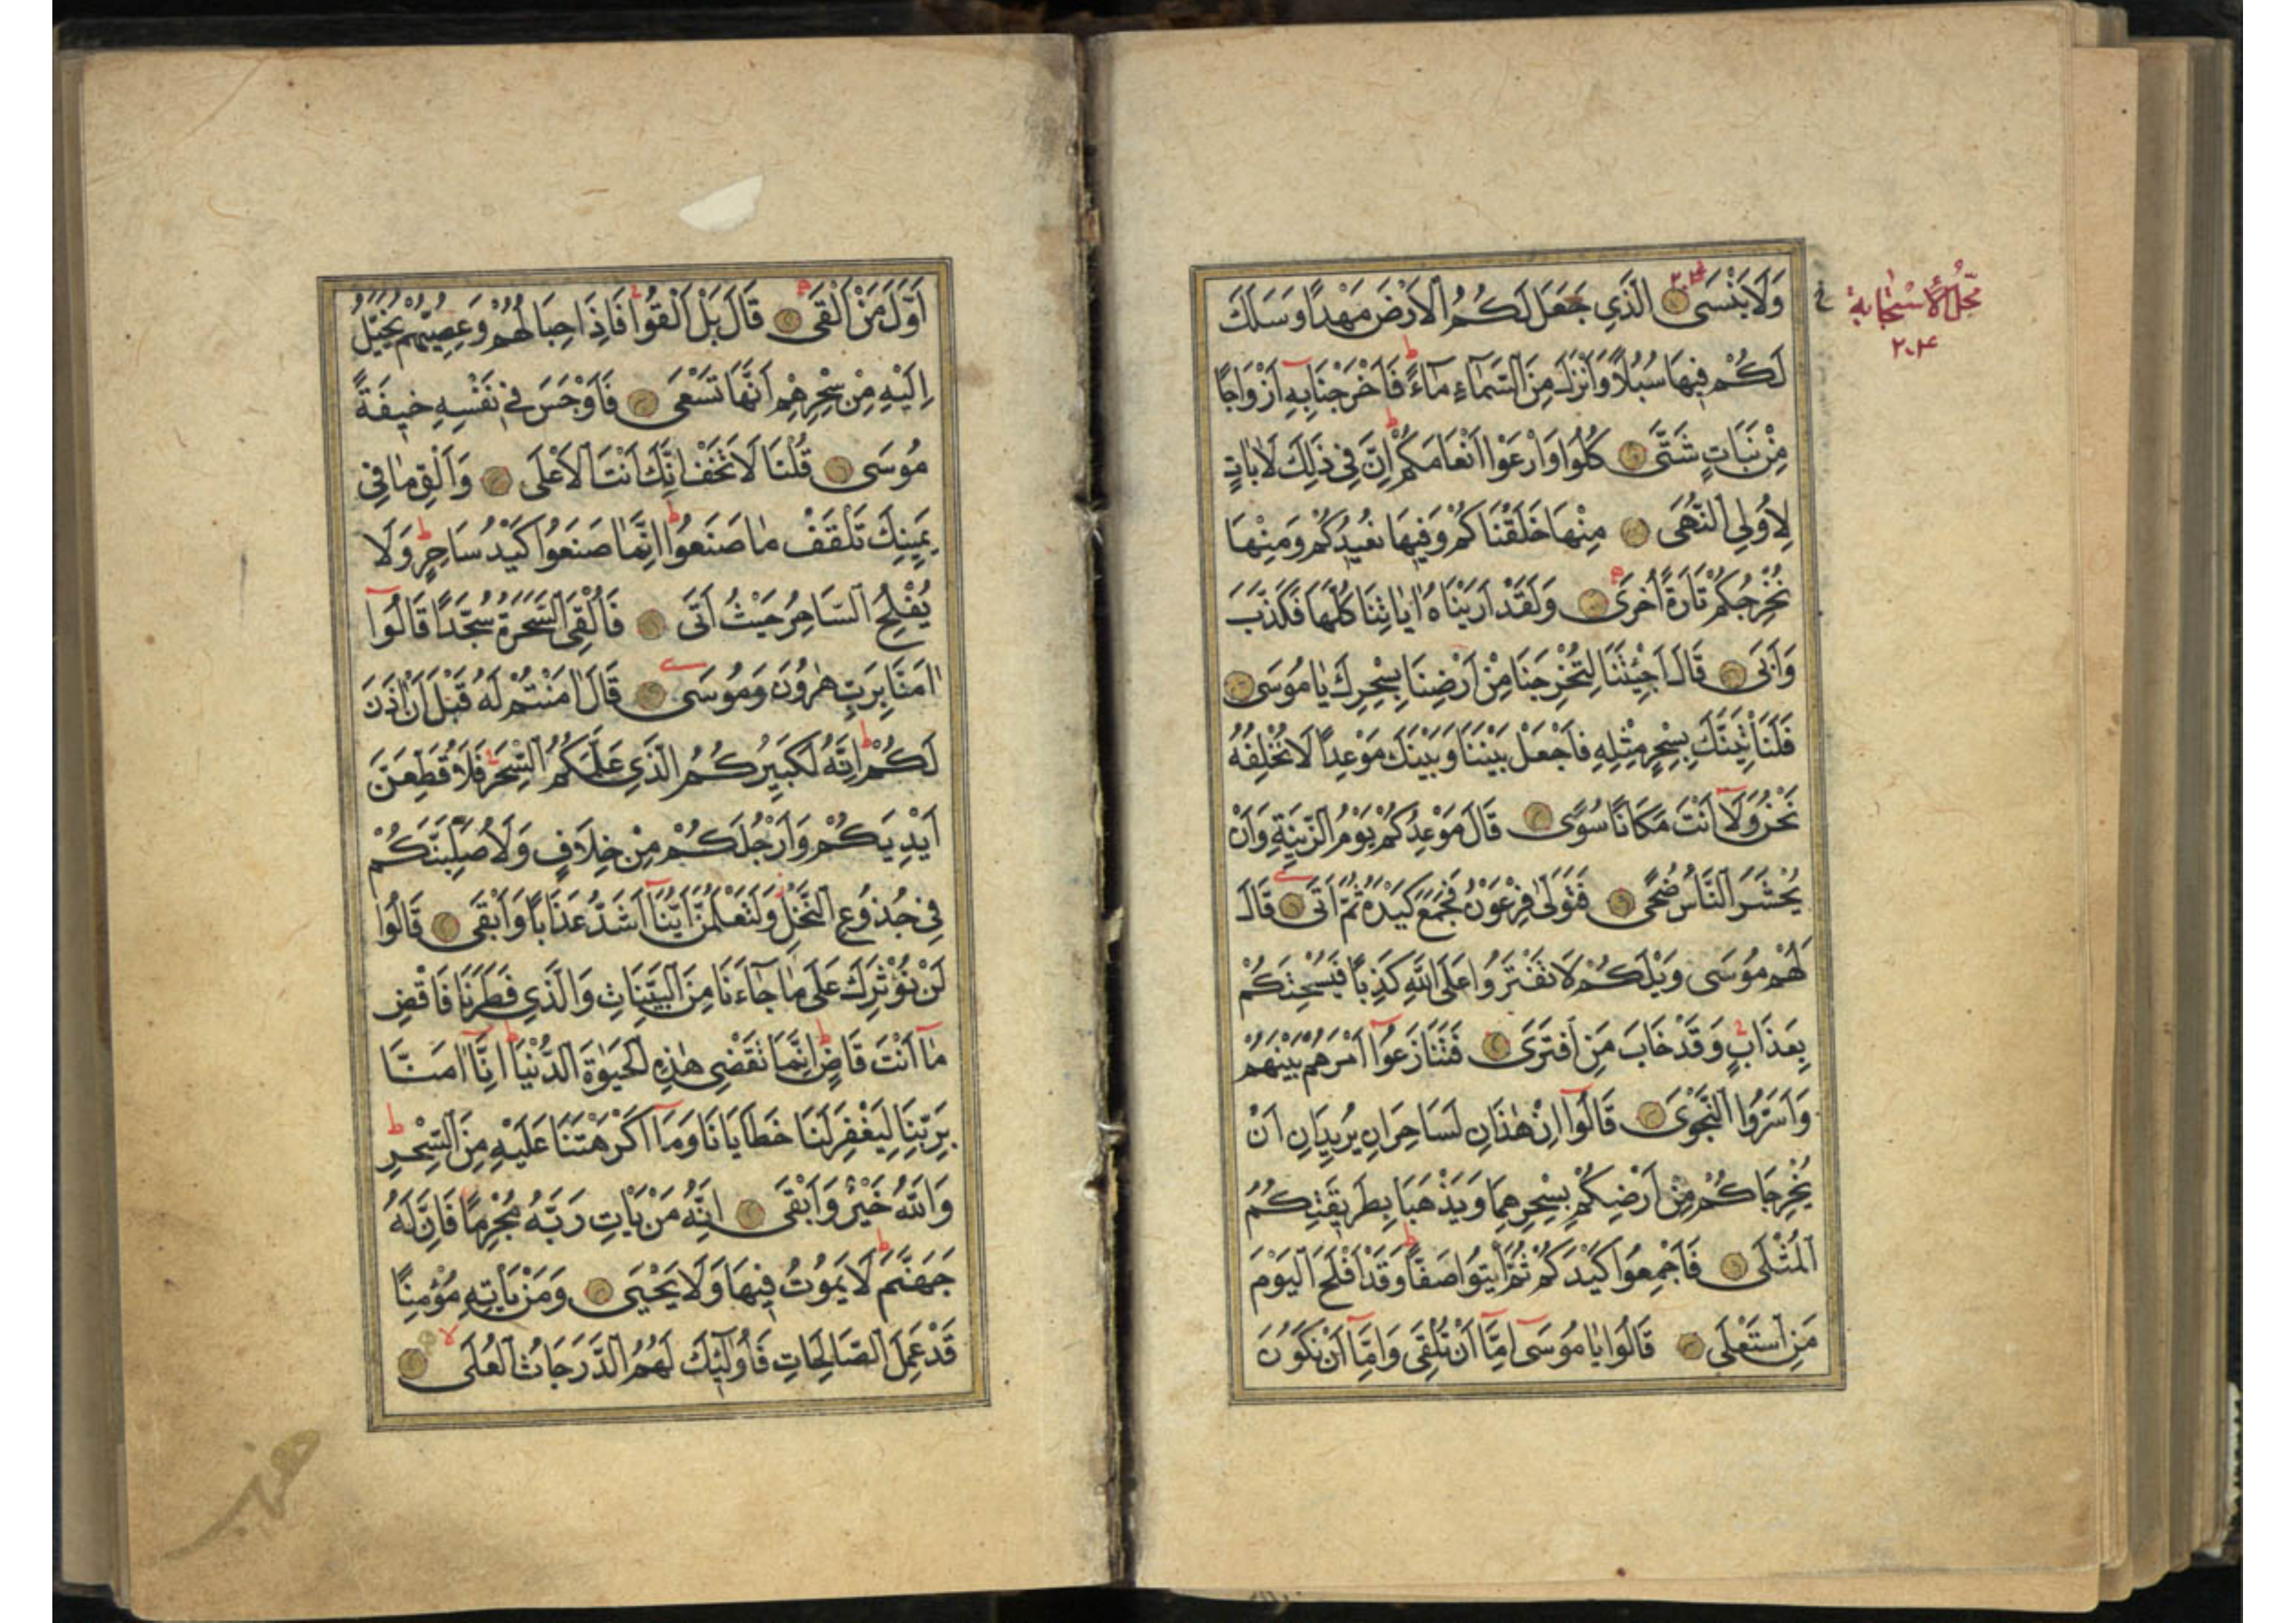 وَلَا يَنْسَى الَّذِي جَعَلَ لَكُمُ الْاَرْضَ مَهْدًا وَسَلَكَ
لَكُمْ فِيهَا سُبُلًا وَاَنْزَلَ مِنَ السَّمَاءِ مَاءً فَاَخْرَجْنَا بِهِ اَزْوَاجًا
مِنْ نَبَاتٍ شَتَّى كُلُوا وَارْعَوْا اَنْعَامَكُمْ اِنَّ فِي ذٰلِكَ لَاٰيَاتٍ
لِاُولِي النُّهَى مِنْهَا خَلَقْنَاكُمْ وَفِيهَا نُعِيدُكُمْ وَمِنْهَا
نُخْرِجُكُمْ تَارَةً اُخْرَى وَلَقَدْ اَرَيْنَاهُ اٰيَاتِنَا كُلَّهَا فَكَذَّبَ
وَاَبَى قَالَ اَجِئْتَنَا لِتُخْرِجَنَا مِنْ اَرْضِنَا بِسِحْرِكَ يَا مُوسَى
فَلَنَأْتِيَنَّكَ بِسِحْرٍ مِثْلِهِ فَاجْعَلْ بَيْنَنَا وَبَيْنَكَ مَوْعِدًا لَا نُخْلِفُهُ
نَحْنُ وَلَا اَنْتَ مَكَانًا سُوًى قَالَ مَوْعِدُكُمْ يَوْمُ الزِّينَةِ وَاَنْ
يُحْشَرَ النَّاسُ ضُحًى فَتَوَلَّى فِرْعَوْنُ فَجَمَعَ كَيْدَهُ ثُمَّ اَتَى قَالَ
لَهُمْ مُوسَى وَيْلَكُمْ لَا تَفْتَرُوا عَلَى اللّٰهِ كَذِبًا فَيُسْحِتَكُمْ
بِعَذَابٍ وَقَدْ خَابَ مَنِ افْتَرَى فَتَنَازَعُوا اَمْرَهُمْ بَيْنَهُمْ
وَاَسَرُّوا النَّجْوَى قَالُوا اِنْ هٰذَانِ لَسَاحِرَانِ يُرِيدَانِ اَنْ
يُخْرِجَاكُمْ مِنْ اَرْضِكُمْ بِسِحْرِهِمَا وَيَذْهَبَا بِطَرِيقَتِكُمُ
الْمُثْلَى فَاَجْمِعُوا كَيْدَكُمْ ثُمَّ ائْتُوا صَفًّا وَقَدْ اَفْلَحَ الْيَوْمَ
مَنِ اسْتَعْلَى قَالُوا يَا مُوسَى اِمَّا اَنْ تُلْقِيَ وَاِمَّا اَنْ نَكُونَ
محل الاستجابة
٢٠٤
اَوَّلَ مَنْ اَلْقَى قَالَ بَلْ اَلْقُوا فَاِذَا حِبَالُهُمْ وَعِصِيُّهُمْ يُخَيَّلُ
اِلَيْهِ مِنْ سِحْرِهِمْ اَنَّهَا تَسْعَى فَاَوْجَسَ فِي نَفْسِهِ خِيفَةً
مُوسَى قُلْنَا لَا تَخَفْ اِنَّكَ اَنْتَ الْاَعْلَى وَاَلْقِ مَا فِي
يَمِينِكَ تَلْقَفْ مَا صَنَعُوا اِنَّمَا صَنَعُوا كَيْدُ سَاحِرٍ وَلَا
يُفْلِحُ السَّاحِرُ حَيْثُ اَتَى فَاُلْقِيَ السَّحَرَةُ سُجَّدًا قَالُوا
اٰمَنَّا بِرَبِّ هٰرُونَ وَمُوسَى قَالَ اٰمَنْتُمْ لَهُ قَبْلَ اَنْ اٰذَنَ
لَكُمْ اِنَّهُ لَكَبِيرُكُمُ الَّذِي عَلَّمَكُمُ السِّحْرَ فَلَاُقَطِّعَنَّ
اَيْدِيَكُمْ وَاَرْجُلَكُمْ مِنْ خِلَافٍ وَلَاُصَلِّبَنَّكُمْ
فِي جُذُوعِ النَّخْلِ وَلَتَعْلَمُنَّ اَيُّنَا اَشَدُّ عَذَابًا وَاَبْقَى قَالُوا
لَنْ نُؤْثِرَكَ عَلَى مَا جَاءَنَا مِنَ الْبَيِّنَاتِ وَالَّذِي فَطَرَنَا فَاقْضِ
مَا اَنْتَ قَاضٍ اِنَّمَا تَقْضِي هٰذِهِ الْحَيٰوةَ الدُّنْيَا اِنَّا اٰمَنَّا
بِرَبِّنَا لِيَغْفِرَ لَنَا خَطَايَانَا وَمَا اَكْرَهْتَنَا عَلَيْهِ مِنَ السِّحْرِ
وَاللّٰهُ خَيْرٌ وَاَبْقَى اِنَّهُ مَنْ يَأْتِ رَبَّهُ مُجْرِمًا فَاِنَّ لَهُ
جَهَنَّمَ لَا يَمُوتُ فِيهَا وَلَا يَحْيَى وَمَنْ يَأْتِهِ مُؤْمِنًا
قَدْ عَمِلَ الصَّالِحَاتِ فَاُولٰئِكَ لَهُمُ الدَّرَجَاتُ الْعُلَى